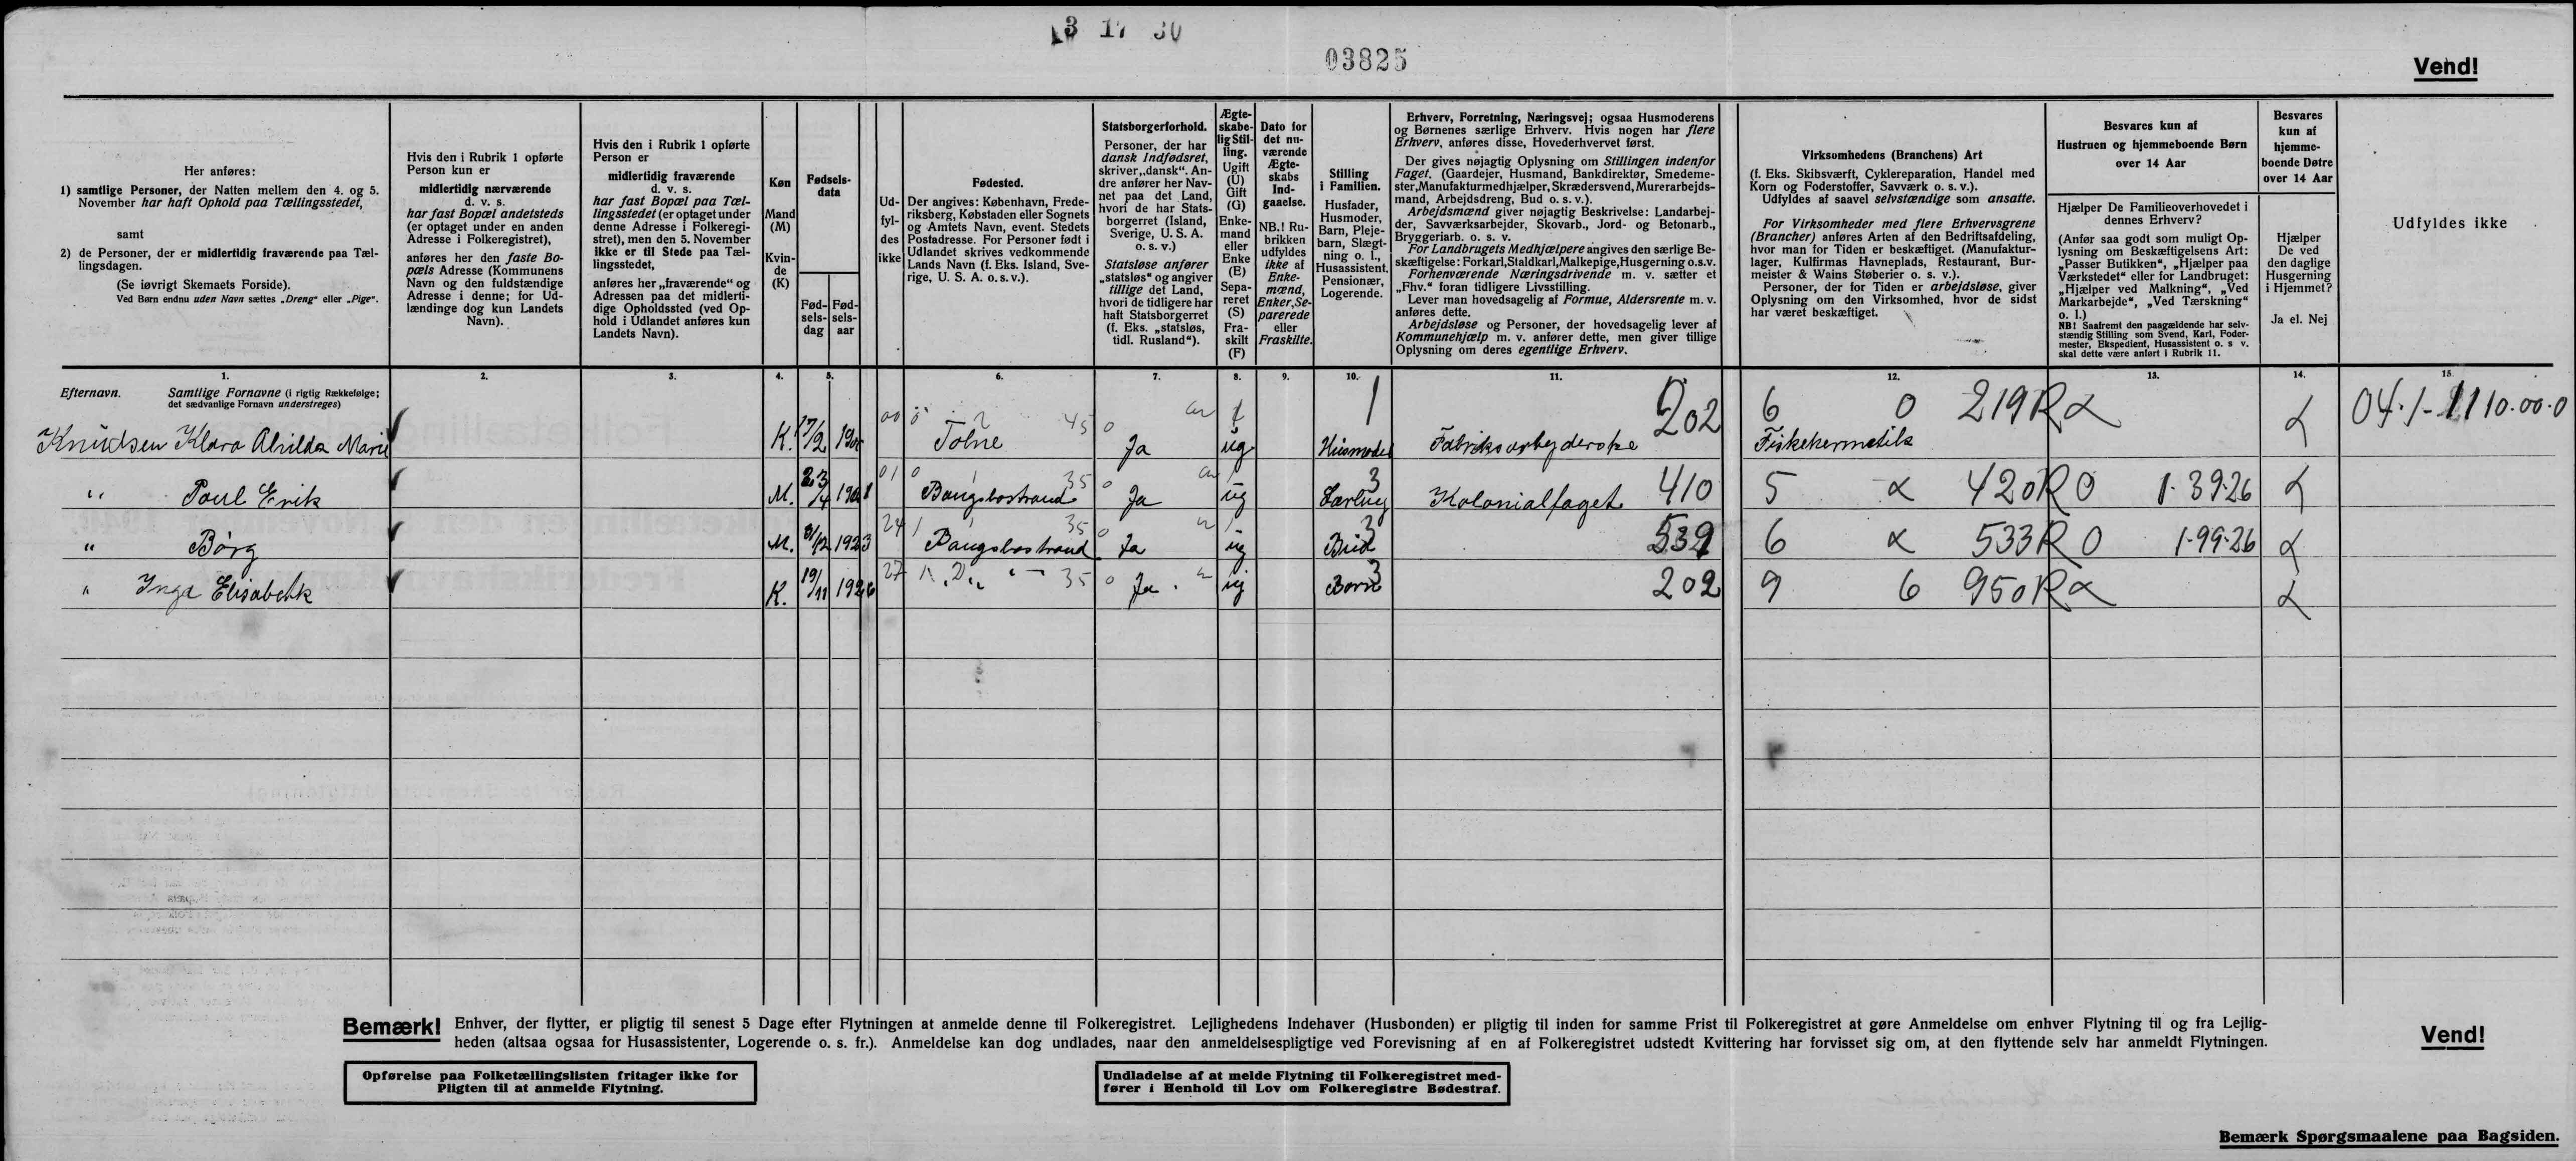 3 17 30
03825
Vend!
Her anføres:
1) samtlige Personer, der Natten mellem den 4. og 5.
November har haft Ophold paa Tællingsstedet,
samt
2) de Personer, der er midlertidig fraværende paa Tæl-
lingsdagen.
(Se iøvrigt Skemaets Forside).
Ved Børn endnu uden Navn sættes „Dreng“ eller „Pige“.
Hvis den i Rubrik 1 opførte
Person kun er
midlertidig nærværende
d. v. s.
har fast Bopæl andetsteds
(er optaget under en anden
Adresse i Folkeregistret),
anføres her den faste Bo-
pæls Adresse (Kommunens
Navn og den fuldstændige
Adresse i denne; for Ud-
lændinge dog kun Landets
Navn).
Hvis den i Rubrik 1 opførte
Person er
midlertidig fraværende
d. v. s.
har fast Bopæl paa Tæl-
lingsstedet (er optaget under
denne Adresse i Folkeregi-
stret), men den 5. November
ikke er til Stede paa Tæl-
lingsstedet,
anføres her „fraværende“ og
Adressen paa det midlerti-
dige Opholdssted (ved Op-
hold i Udlandet anføres kun
Landets Navn).
Køn
Mand
(M)
Kvin-
de
(K)
Fødsels-
data
Fød-
sels-
dag
Fød-
sels-
aar
Ud-
fyl-
des
ikke
Fødested.
Der angives: København, Frede-
riksberg, Købstaden eller Sognets
og Amtets Navn, event. Stedets
Postadresse. For Personer født i
Udlandet skrives vedkommende
Lands Navn (f. Eks. Island, Sve-
rige, U. S. A. o. s. v.).
Statsborgerforhold.
Personer, der har
dansk Indfødsret,
skriver „dansk“. An-
dre anfører her Nav-
net paa det Land,
hvori de har Stats-
borgerret (Island,
Sverige, U. S. A.
o. s. v.)
Statsløse anfører
„statsløs“ og angiver
tillige det Land,
hvori de tidligere har
haft Statsborgerret
(f. Eks. „statsløs,
tidl. Rusland“).
Ægte-
skabe-
lig Stil-
ling.
Ugift
(U)
Gift
(G)
Enke-
mand
eller
Enke
(E)
Sepa-
reret
(S)
Fra-
skilt
(F)
Dato for
det nu-
værende
Ægte-
skabs
Ind-
gaaelse.
NB.! Ru-
brikken
udfyldes
ikke af
Enke-
mænd,
Enker, Se-
parerede
eller
Fraskilte.
Stilling
i Familien.
Husfader,
Husmoder,
Barn, Pleje-
barn, Slægt-
ning o. l.,
Husassistent,
Pensionær,
Logerende.
Erhverv, Forretning, Næringsvej; ogsaa Husmoderens
og Børnenes særlige Erhverv. Hvis nogen har flere
Erhverv, anføres disse, Hovederhvervet først.
Der gives nøjagtig Oplysning om Stillingen indenfor
Faget. (Gaardejer, Husmand, Bankdirektør, Smedeme-
ster, Manufakturmedhjælper, Skrædersvend, Murerarbejds-
mand, Arbejdsdreng, Bud o. s. v.).
Arbejdsmænd giver nøjagtig Beskrivelse: Landarbej-
der, Savværksarbejder, Skovarb., Jord- og Betonarb.,
Bryggeriarb. o. s. v.
For Landbrugets Medhjælpere angives den særlige Be-
skæftigelse: Forkarl, Staldkarl, Malkepige, Husgerning o.s.v.
Forhenværende Næringsdrivende m. v. sætter et
„Fhv.“ foran tidligere Livsstilling.
Lever man hovedsagelig af Formue, Aldersrente m. v.
anføres dette.
Arbejdsløse og Personer, der hovedsagelig lever af
Kommunehjælp m. v. anfører dette, men giver tillige
Oplysning om deres egentlige Erhverv.
Virksomhedens (Branchens) Art
(f. Eks. Skibsværft, Cyklereparation, Handel med
Korn og Foderstoffer, Savværk o. s. v.).
Udfyldes af saavel selvstændige som ansatte.
For Virksomheder med flere Erhvervsgrene
(Brancher) anføres Arten af den Bedriftsafdeling,
hvor man for Tiden er beskæftiget. (Manufaktur-
lager, Kulfirmas Havneplads, Restaurant, Bur-
meister & Wains Støberier o. s. v.).
Personer, der for Tiden er arbejdsløse, giver
Oplysning om den Virksomhed, hvor de sidst
har været beskæftiget.
Besvares kun af
Hustruen og hjemmeboende Børn
over 14 Aar
Hjælper De Familieoverhovedet i
dennes Erhverv?
(Anfør saa godt som muligt Op-
lysning om Beskæftigelsens Art:
„Passer Butikken“, „Hjælper paa
Værkstedet“ eller for Landbruget:
„Hjælper ved Malkning“, „Ved
Markarbejde“, „Ved Tærskning“
o. l.)
NB! Saafremt den paagældende har selv-
stændig Stilling som Svend, Karl, Foder-
mester, Ekspedient, Husassistent o. s v.
skal dette være anført i Rubrik 11.
Besvares
kun af
hjemme-
boende Døtre
over 14 Aar
Hjælper
De ved
den daglige
Husgerning
i Hjemmet?
Ja el. Nej
Udfyldes ikke
1. 2. 3. 4. 5. 6. 7. 8. 9. 10. 11. 12. 13. 14. 15.
Efternavn. Samtlige Fornavne (i rigtig Rækkefølge;
det sædvanlige Fornavn understreges)
00 45 0 1 202 6 0 219 R α 04.1-1110.00.0
Knudsen Klara Alvilda Marie K. 17/2 Tolne Ja ug Husmoder Fabriksarbejderske Fiskehermetik
" Poul Erik M. 23/4 01 0 Bangsbostrand 35 0 Ja ug 3 Lærling Kolonialfaget 410 5 α 420 R 0 1-39-26 α
" Børg M. /12 1923 24 1 Bangsbostrand 35 0 Ja ug 3 Bud 539 6 α 533 R 0 1-99-26 α
" Inga Elisabeth K. 19/11 1926 27 1 " 35 0 Ja ug 3 Barn 202 9 6 950 R α α
Bemærk! Enhver, der flytter, er pligtig til senest 5 Dage efter Flytningen at anmelde denne til Folkeregistret. Lejlighedens Indehaver (Husbonden) er pligtig til inden for samme Frist til Folkeregistret at gøre Anmeldelse om enhver Flytning til og fra Lejlig-
heden (altsaa ogsaa for Husassistenter, Logerende o. s. fr.). Anmeldelse kan dog undlades, naar den anmeldelsespligtige ved Forevisning af en af Folkeregistret udstedt Kvittering har forvisset sig om, at den flyttende selv har anmeldt Flytningen.
Vend!
Opførelse paa Folketællingslisten fritager ikke for
Pligten til at anmelde Flytning.
Undladelse af at melde Flytning til Folkeregistret med-
fører i Henhold til Lov om Folkeregistre Bødestraf.
Bemærk Spørgsmaalene paa Bagsiden.